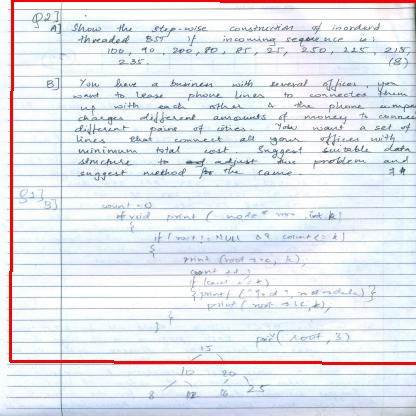 Q2]
A] Show the step-wise construction of inorderd
threaded BST if incoming sequence is:
100, 90, 200, 80, 85, 25, 250, 225, 215,
235. (8)
B] You have a business with several offices, you
want to lease phone lines to connected them
up with each other & the phone
charges different amounts of money to connec
different pairs of cities. You want a set of
lines that connect all your offices with
minimum total cost. Suggest suitable data
structure to adjust problem and
suggest method for the same.
B]
count = 0
void print ( node* int k)
{
if (root != NULL && count <= k)
{
print (root -> k),
count ++;
if (count == k)
print (root -> k),
}
}
(root, 3)
15
10 20
8 25